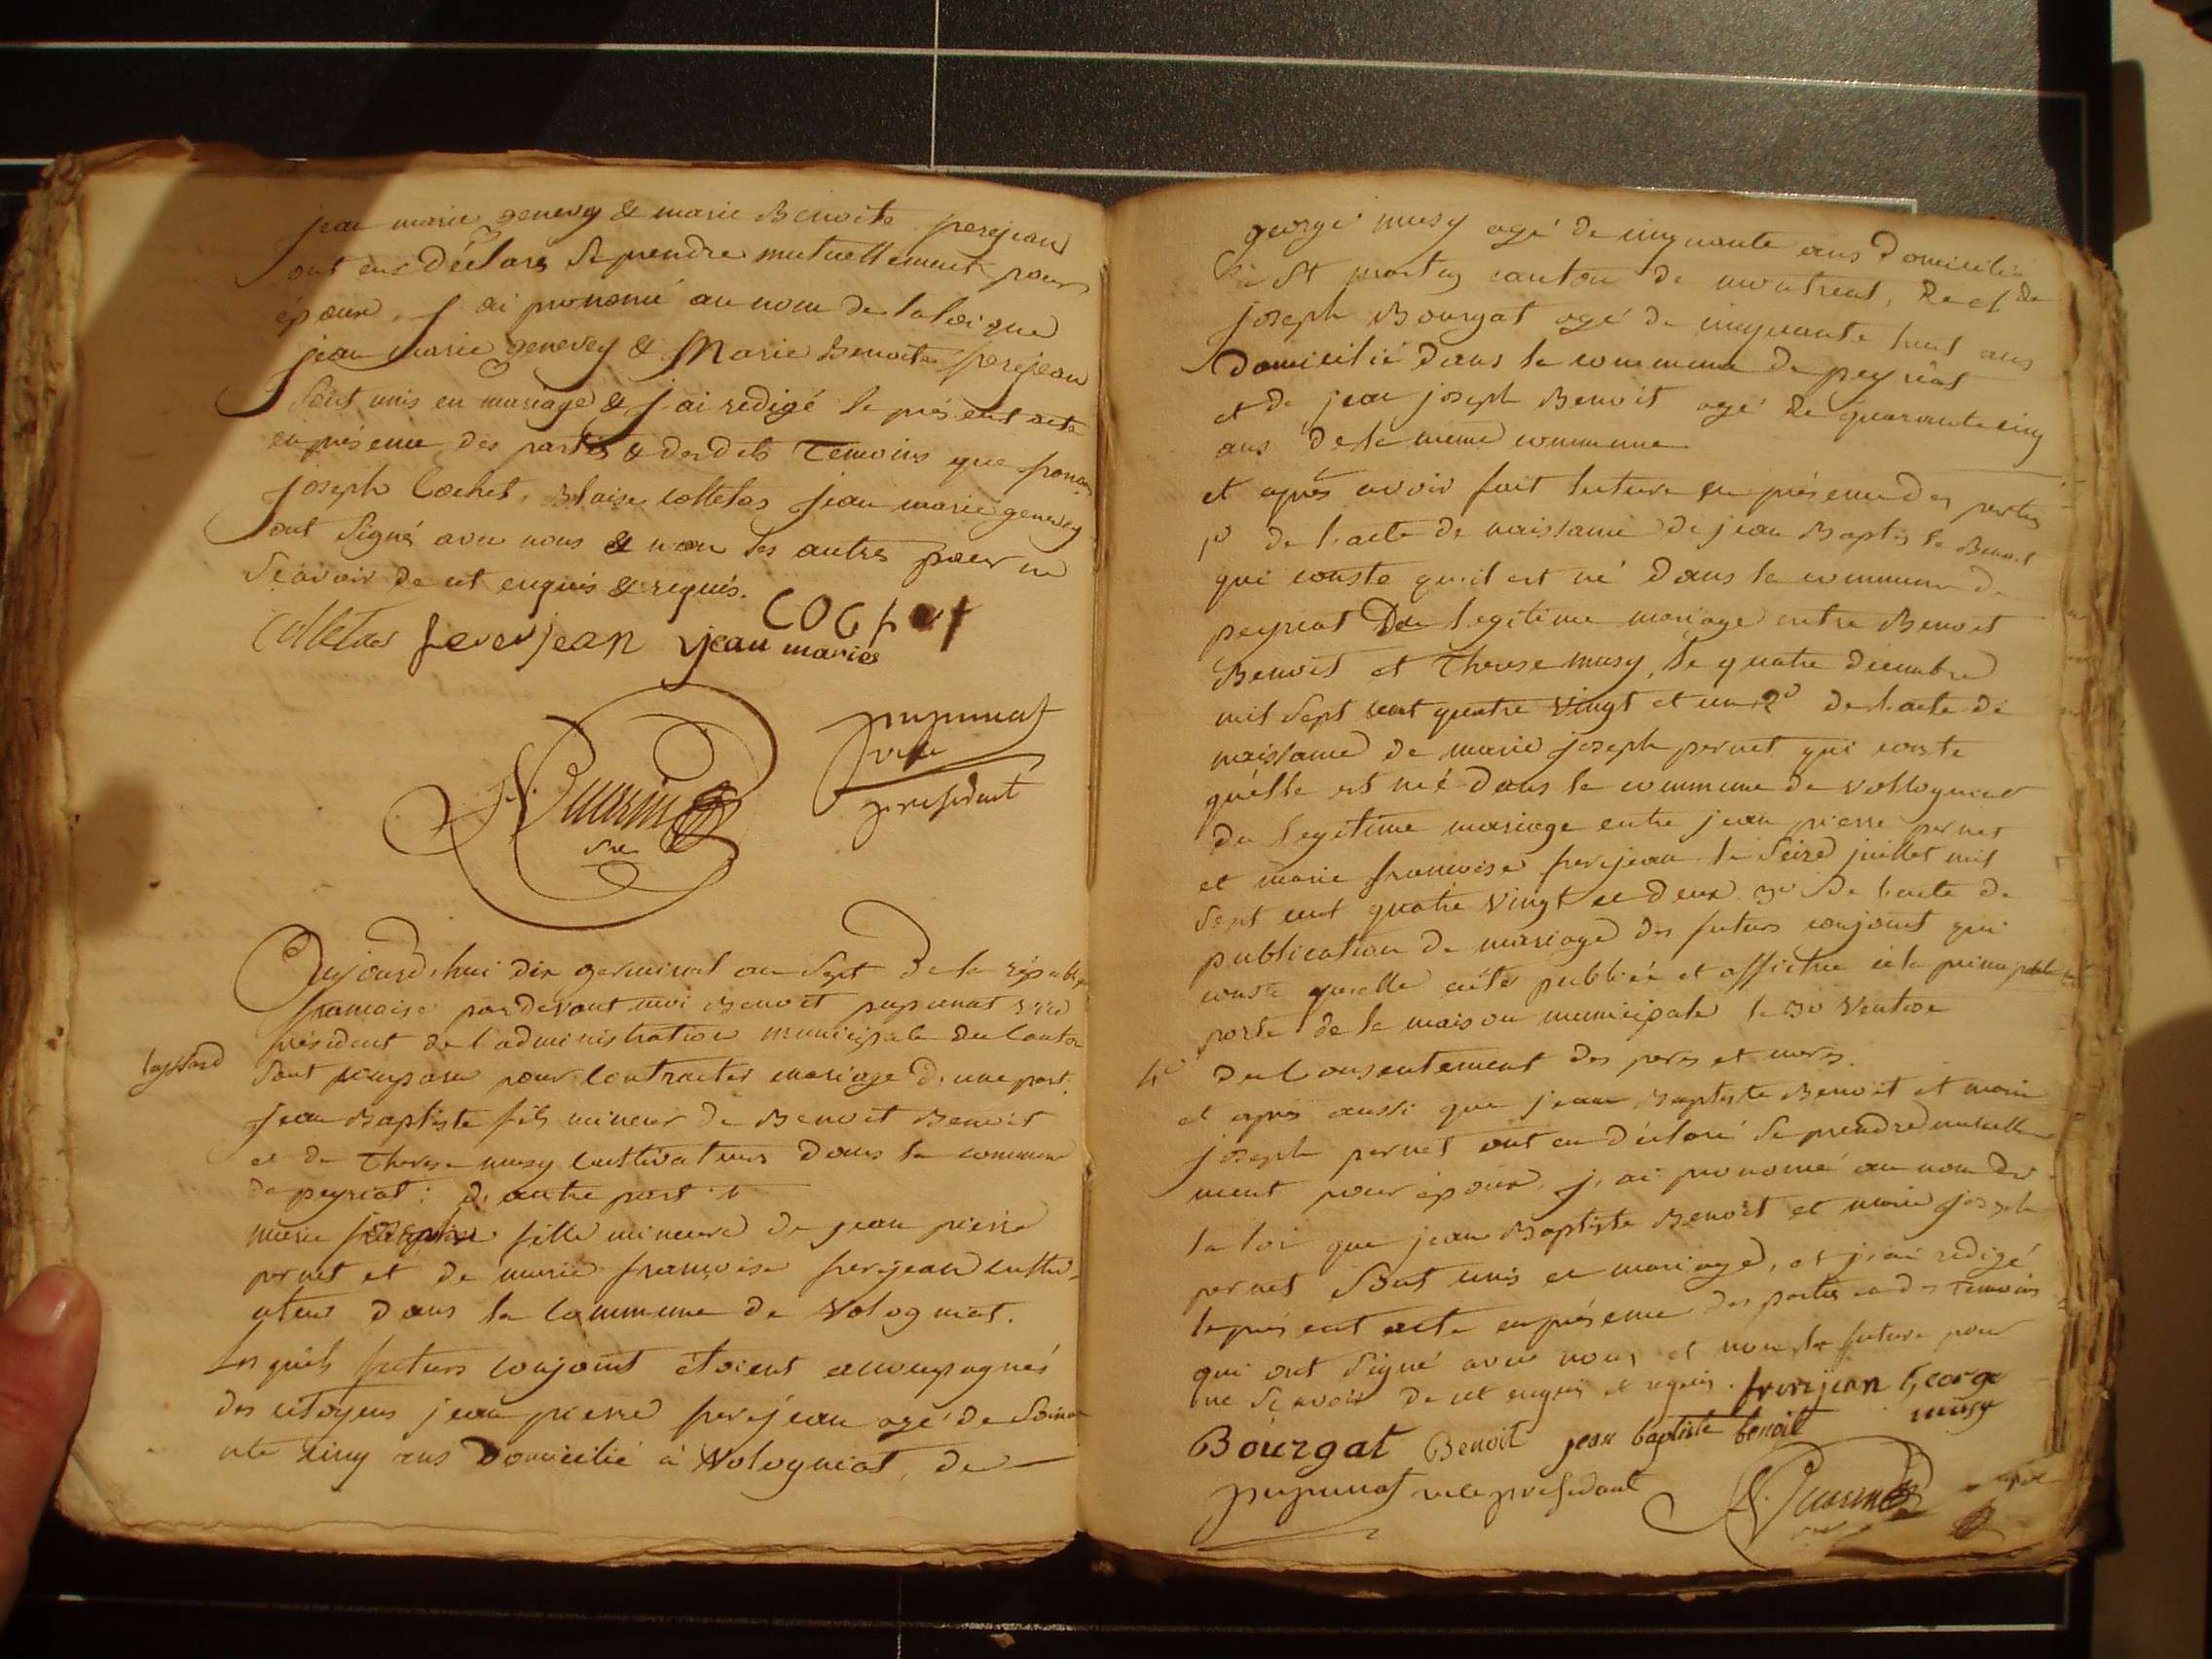 jean marie genevey & marie Benoite frerejean
ont eux déclaré se prendre mutuellement pour
époux, j'ai prononcé au nom de la loi que
jean marie genevey & Marie Benoite frerejean
sont unis en mariage & j'ai redigé le présent acte
en présence des parties & desdits Temoins que
joseph Cochet, Blaise Colletas jean marie genevey
ont signés avec nous & non les autres pour ne
scavoir de cet enquis & requis.
Colletas frerejean jean marie COCHET
pupunat
vice
president
Aujourdhui dix germinal an sept de la républiq
francaise pardevant moi Benoit pupunat vice
président de l'administration municipale du Canton
sont comparu pour Contracter mariage d'une part.
jean Baptiste fils mineur de Benoit Benoit
et de Therese musy Cultivateurs dans la commune
de peyriat : d'autre part
marie fille mineure de jean pierre
pernet et de marie françoise frerejean culti-
vateur dans la Commune de Volognat.
Lesquels futurs conjoint étoient accompagnés
des citoyens jean pierre frerejean agé de
nte cinq ans Domicilié à Volognat, de
george musy agé de cinquante ans Domicilié
à St martin canton de montreal, de
joseph Bourgat agé de cinquante huit ans
Domicilié dans la commune de peyriat
et de jean joseph Benoit agé de quarante cinq
ans de la meme commune
et après avoir fait lecture en présence des parties
1º de l'acte de naissance de jean Baptiste Benoit
qui conste qu'il est né dans la commune de
peyriat De legitime mariage entre Benoit
Benoit et Therese musy, le quatre décembre
mil sept cent quatre vingt et un 2º de l'acte de
naissance de marie joseph pernet qui conste
qu'elle est née dans la commune de vollognat
du legitime mariage entre jean pierre pernet
et marie francoise frerejean le seize juillet mil
sept cent quatre vingt et deux 3º de l'acte de
publication de mariage des futurs conjoint qui
conste quelle a été publiée et affichée à la principale
porte de la maison municipale le 30 Ventose
4º du Consentement des peres et meres.
et apres aussi que jean Baptiste Benoit et marie
joseph pernet ont eu déclaré se prendre mutuelle
ment pour époux, j'ai prononcé au nom de
la loi que jean Baptiste Benoit et marie joseph
pernet sont unis en mariage, et j'ai redigé
le présent acte en présence des parties et des temoins
qui ont signé avec nous et non la future pour
ne scavoir de cet enquis et requis. frerejean George
musy
Bourgat Benoit jean baptiste benoit
pupunat vice president